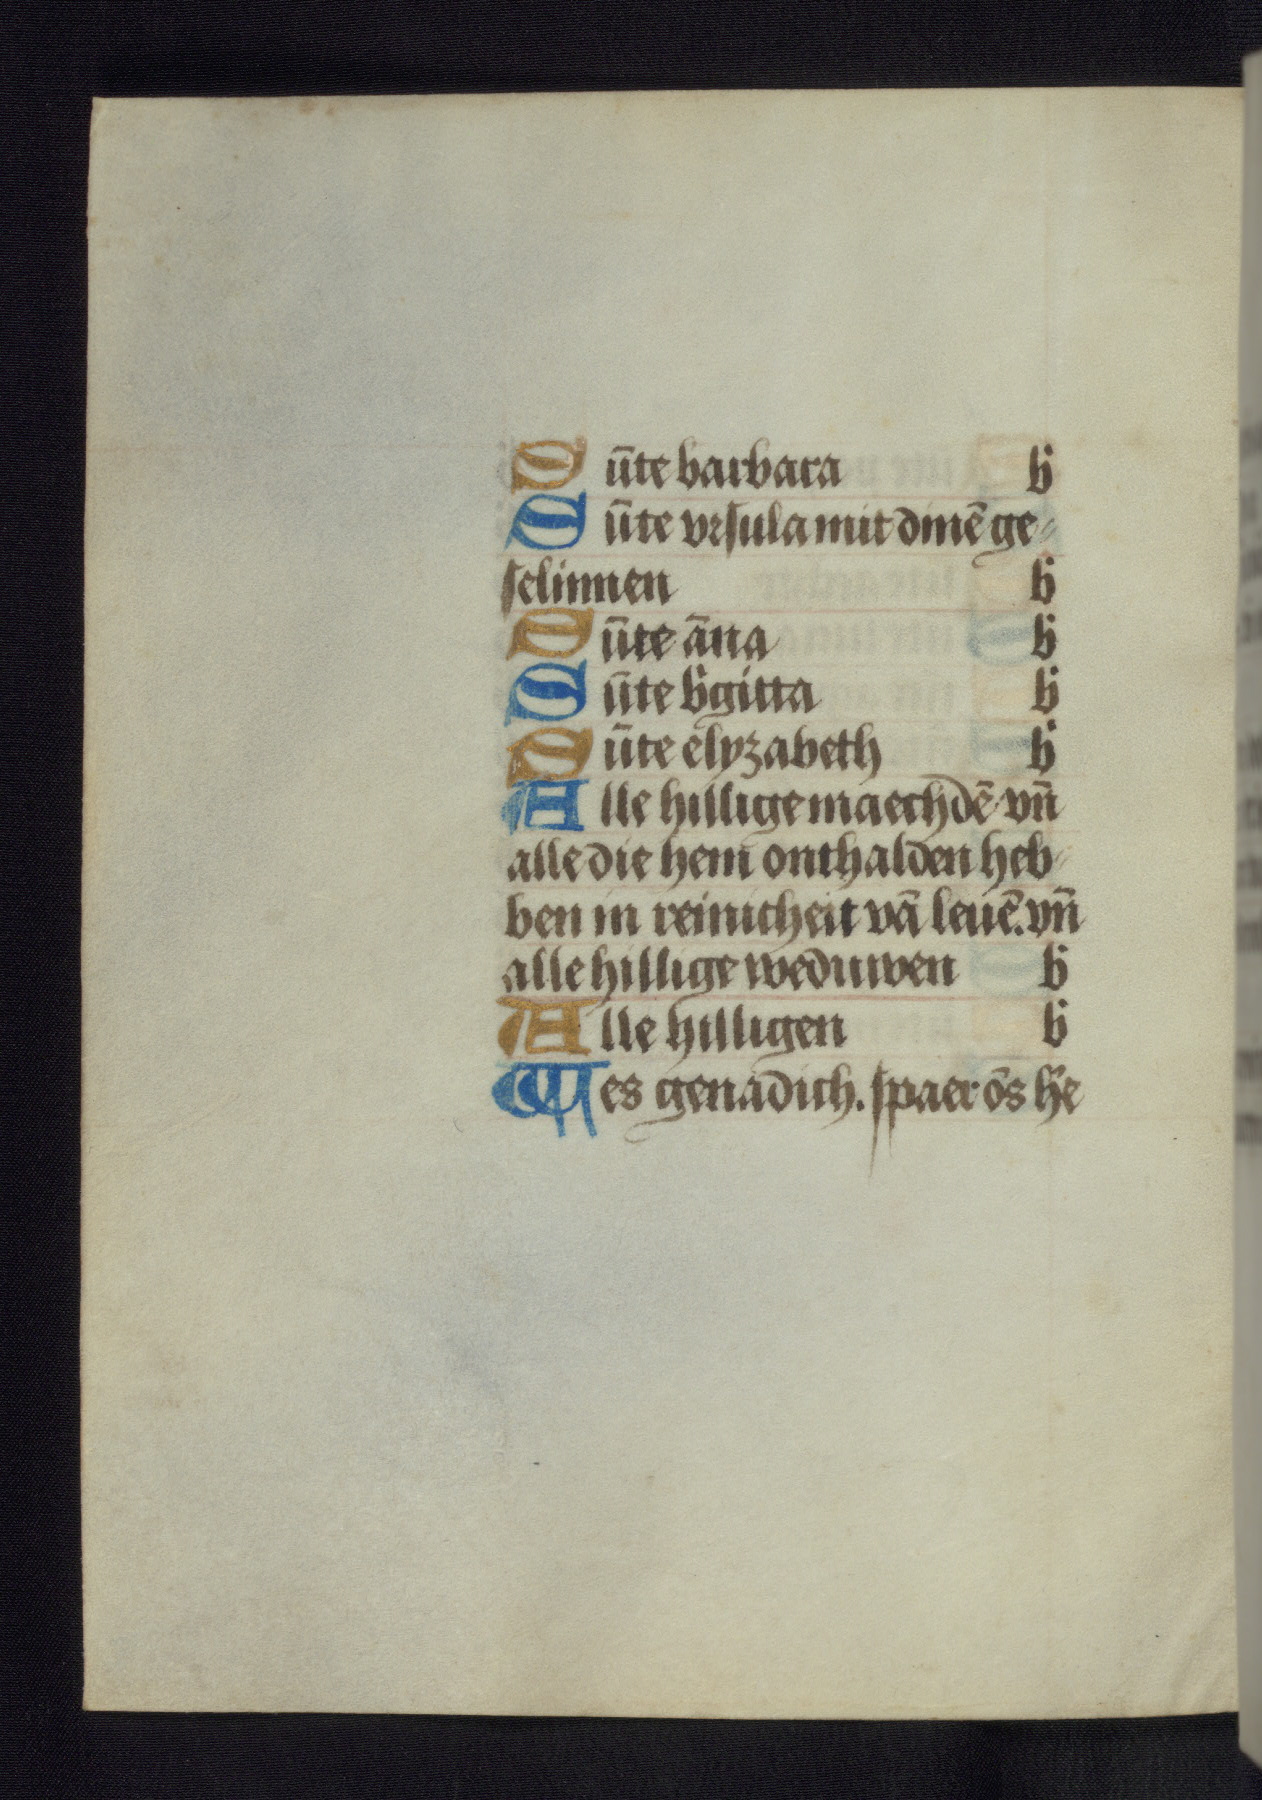 Sūte barbara b̄
Sūte vrsula mit dinē ge-
selinnen b̄
Sūte āna b̄
Sūte b̄gitta b̄
Sūte elyzabeth b̄
Alle hillige maechdē vn̄
alle die hem onthalden heb-
ben in reinicheit vā leuē. vn̄
alle hillige weduwen b̄
Alle hilligen b̄
Wes genadich. spaer ōs he